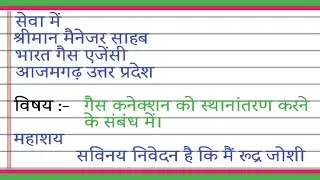 सेवा में
श्रीमान मैनेजर साहब
भारत गैस एजेंसी
आजमगढ़ उत्तर प्रदेश
विषय :- गैस कनेक्शन को स्थानांतरण करने
के संबंध में।
महाशय
सविनय निवेदन है कि मैं रूद्र जोशी